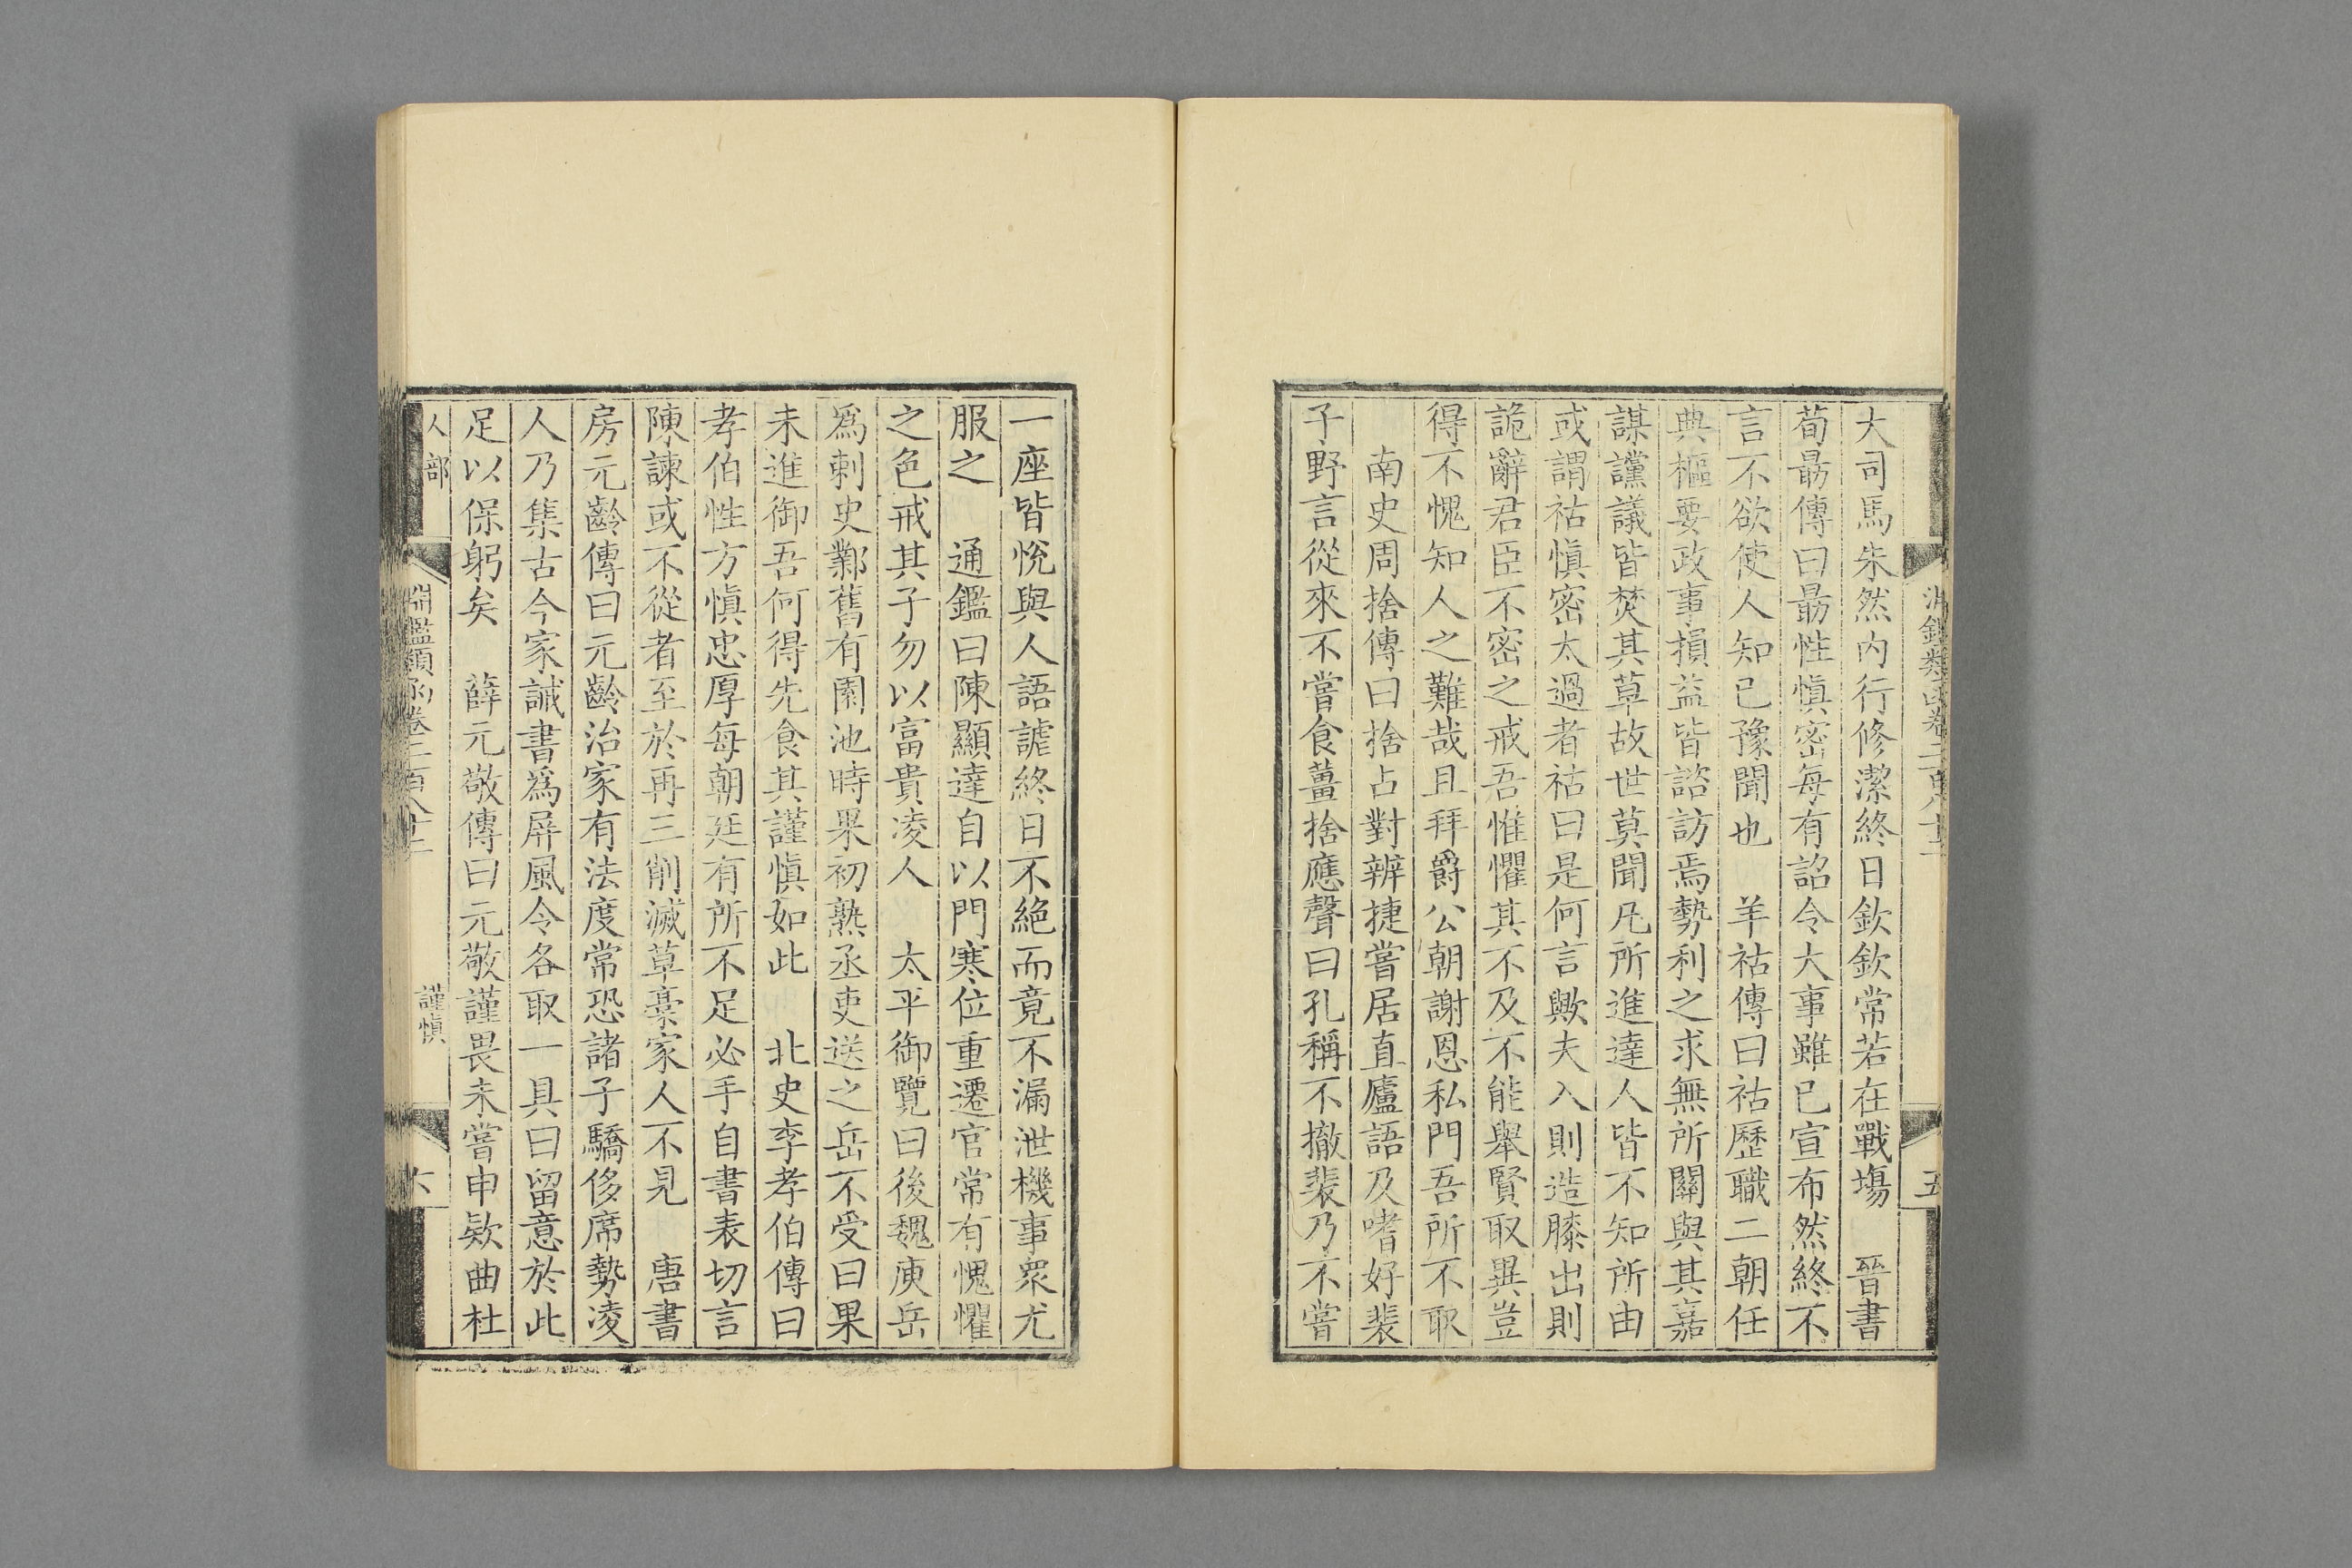 大司馬朱然內行修潔終日欽欽常若在戰塲　晉書
荀勗傳曰勗性慎密每有詔令大事雖已宣布然終不
言不欲使人知已豫聞也　羊祜傳曰祜歷職二朝任
典樞要政事損益皆諮訪焉勢利之求無所關與其嘉
謀讜議皆焚其草故世莫聞凡所進達人皆不知所由
或謂祜慎密太過者祜曰是何言歟夫入則造膝出則
詭辭君臣不密之戒吾惟懼其不及不能舉賢取異豈
得不愧知人之難哉且拜爵公朝謝恩私門吾所不取
南史周捨傳曰捨占對辨捷嘗居直廬語及嗜好裴
子野言從來不嘗食薑捨應聲曰孔稱不撤裴乃不嘗
一座皆悅與人語謔終日不絕而竟不漏泄機事衆尤
服之　通鑑曰陳顯達自以門寒位重遷官常有愧懼
之色戒其子勿以富貴凌人　太平御覽曰後魏庾岳
爲刺史鄴舊有園池時果初熟丞吏送之岳不受曰果
未進御吾何得先食其謹慎如此　北史李孝伯傳曰
孝伯性方慎忠厚每朝廷有所不足必手自書表切言
陳諫或不從者至於再三削滅草藁家人不見　唐書
房元齡傳曰元齡治家有法度常恐諸子驕侈席勢凌
人乃集古今家誡書爲屏風令各取一具曰留意於此
足以保躬矣　薛元敬傳曰元敬謹畏未嘗申欵曲杜
人部　淵鑑類函卷二百八十二　謹慎　六